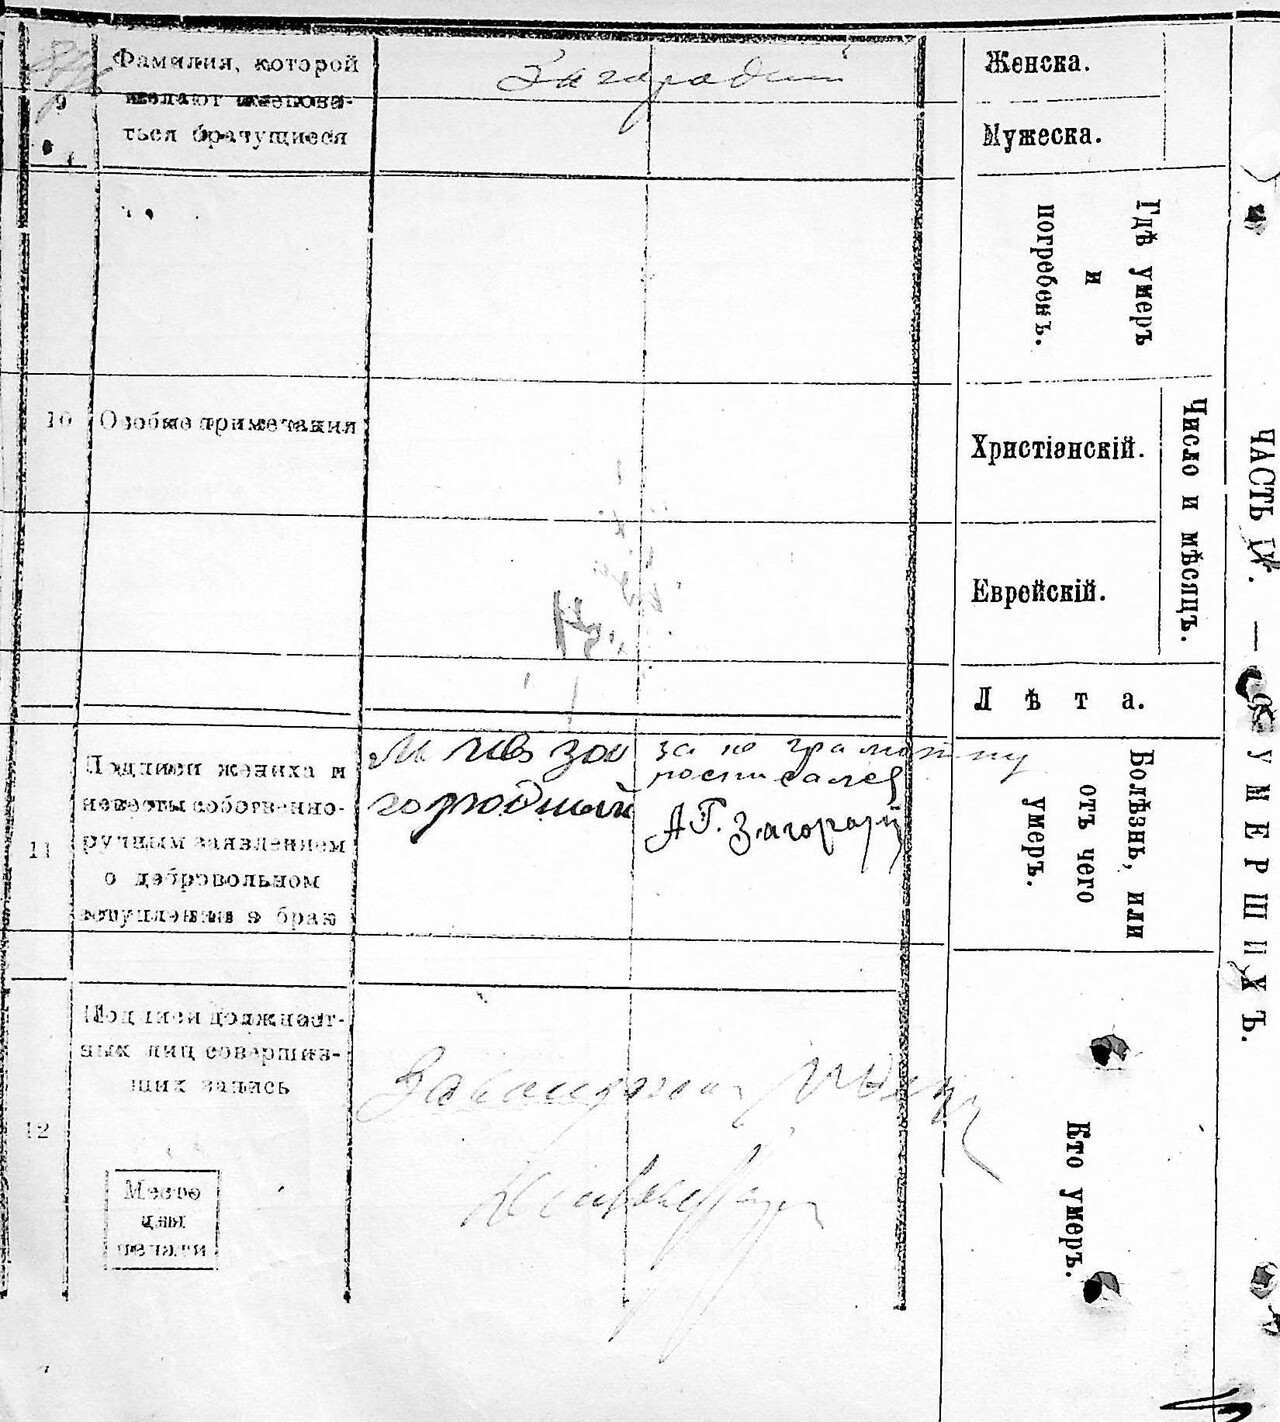 9
Фамилия, которой
желают именова-
ться брачущиеся
Загородний
10
Особые примечания
11
Подписи жениха и
невесты собственно-
ручным заявлением
о добровольном
вступлении в брак
городный
за не грамотну
росписался
А.Г. Загородн
12
Подписи должност-
ных лиц совершив-
ших запись
Место
для
печати
Женска.
Мужеска.
Гдѣ умеръ
и
погребенъ.
Число и мѣсяцъ.
Христіанскій.
Еврейскій.
Лѣта.
Болѣзнь, или
отъ чего
умеръ.
Кто умеръ.
ЧАСТЬ IV. — О УМЕРШИХЪ.